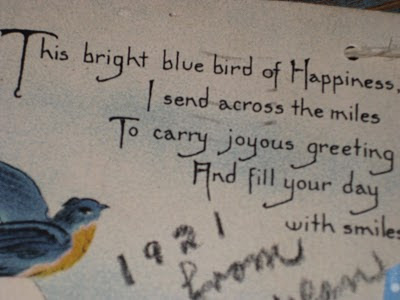 This bright blue bird of Happiness,
I send across the miles
To carry joyous greeting
And fill your day
with smiles
1921
from